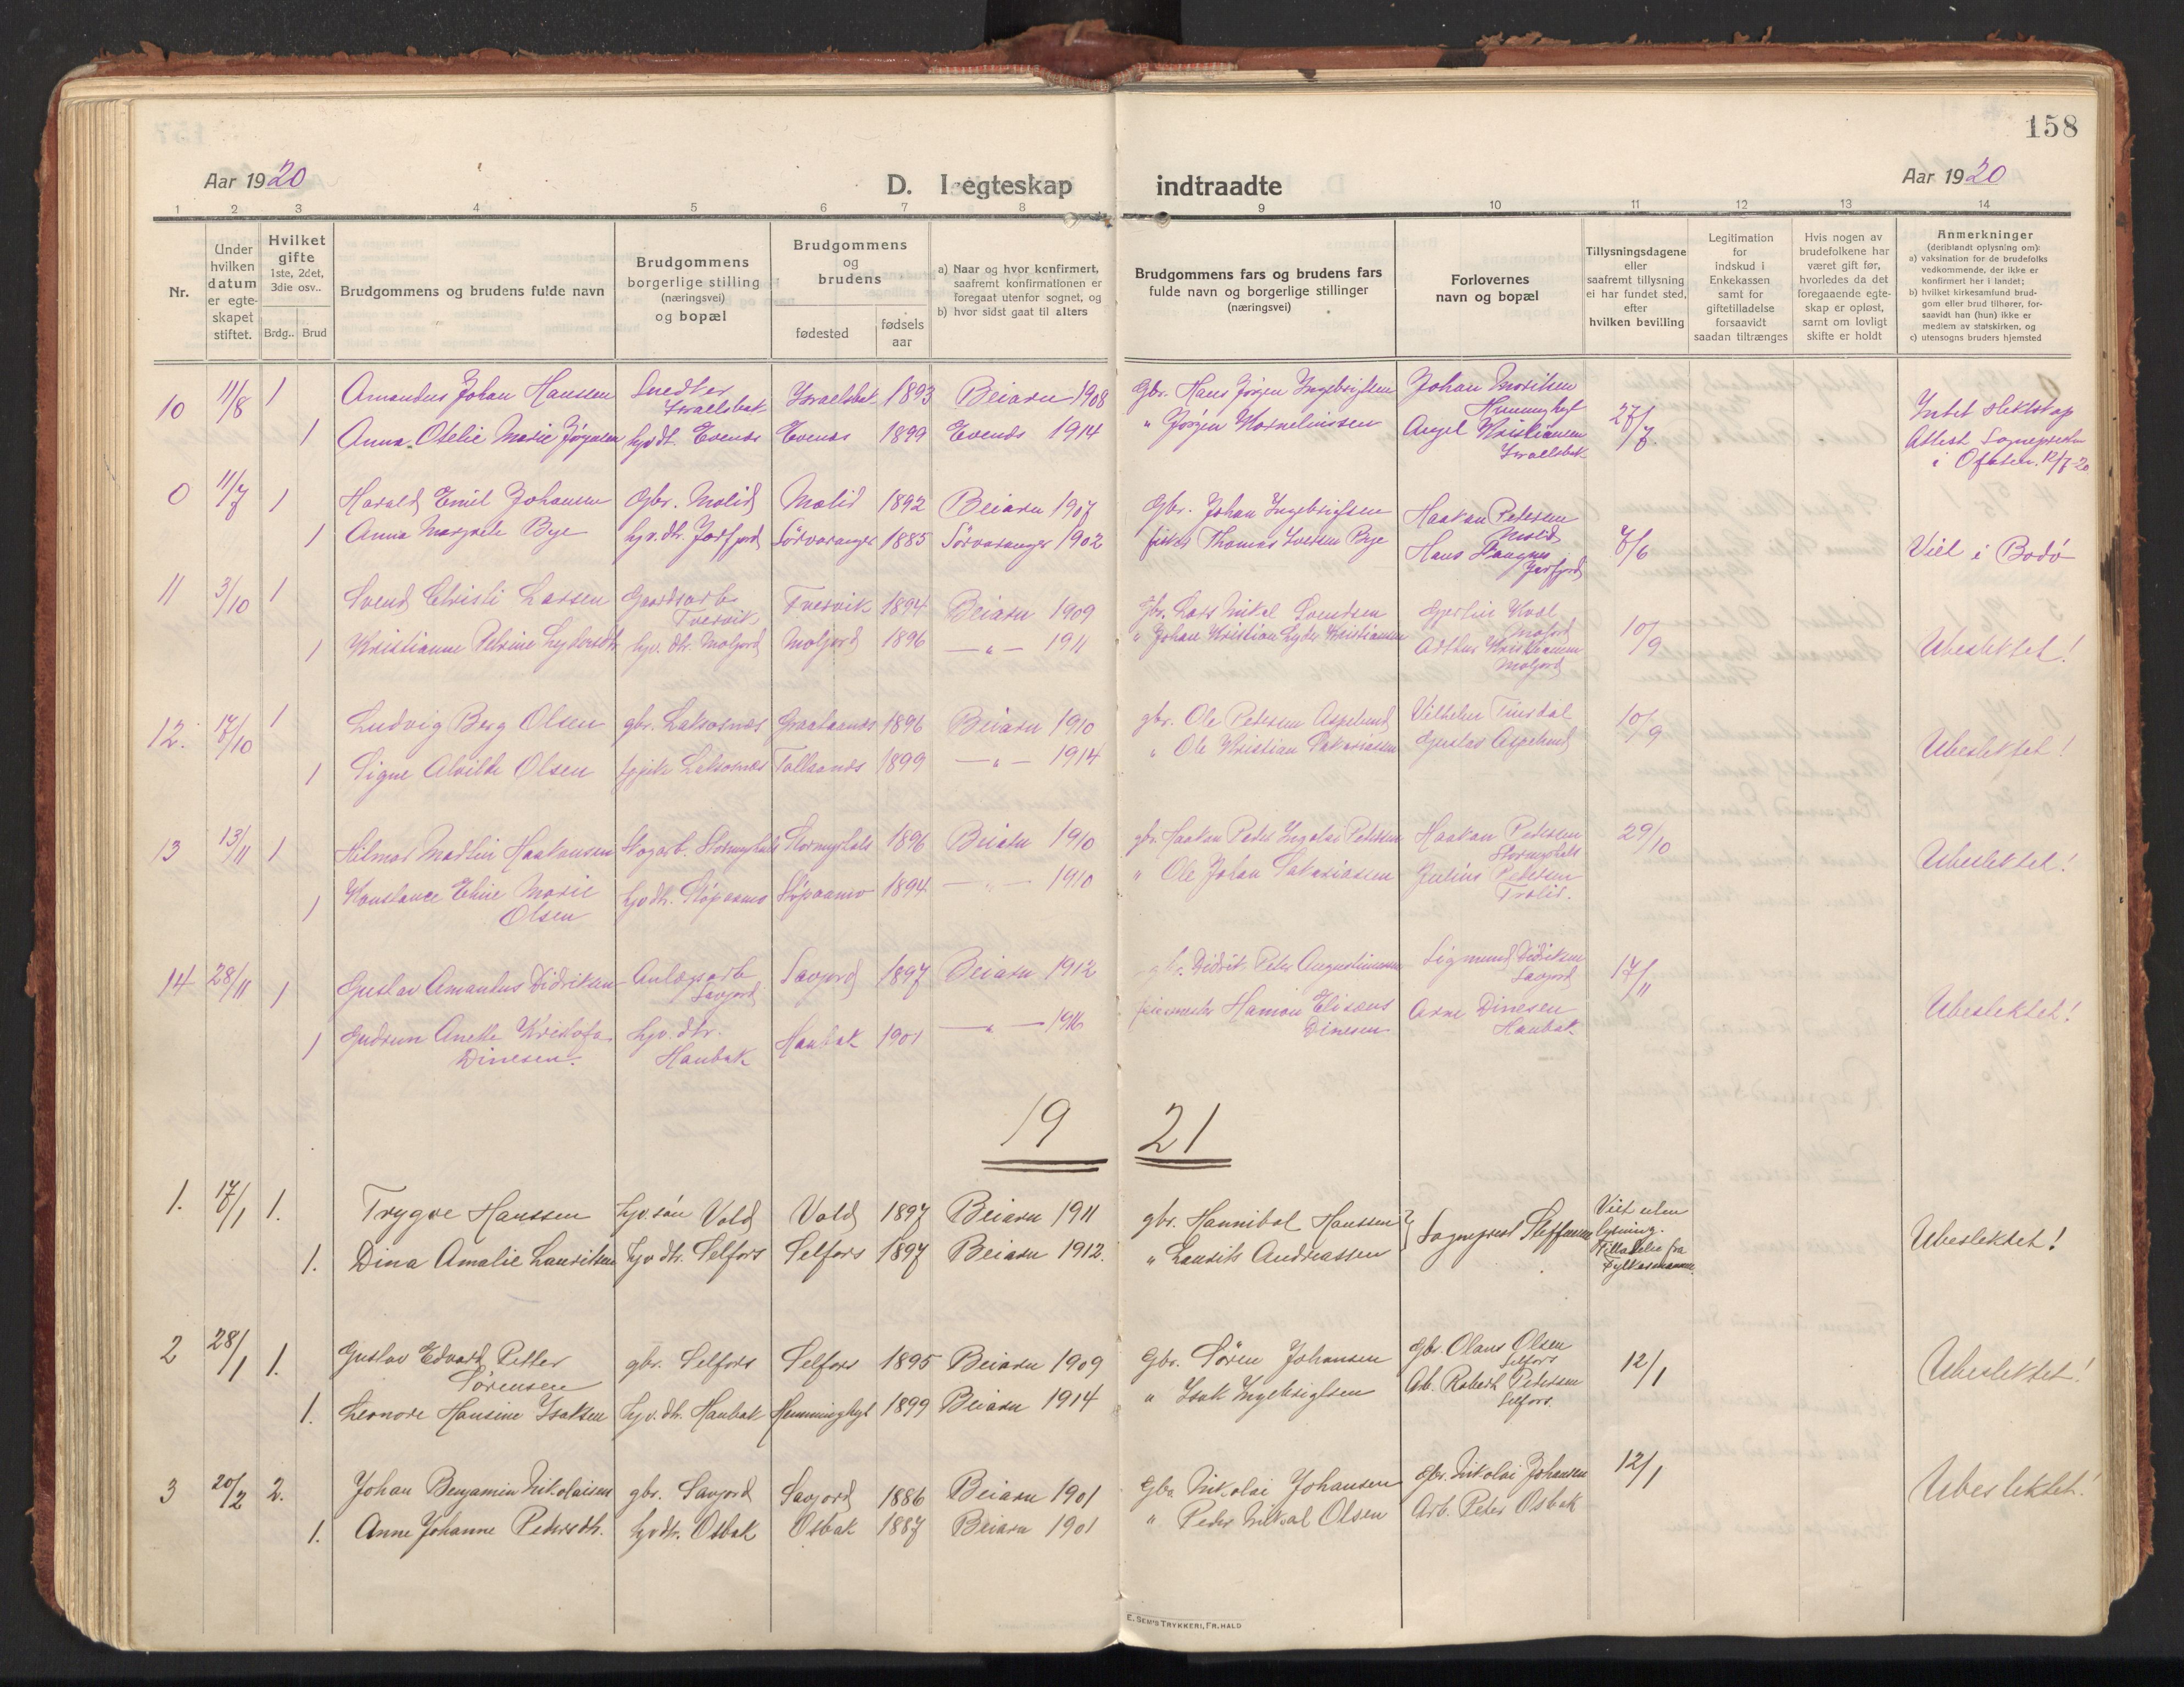 158
Aar 1920
D. I egteskap indtraadte
Aar 1920
1 2 3 4 5 6 7 8 9 10 11 12 13 14
Nr.
Under hvilken datum er egteskapet stiftet.
Hvilket gifte 1ste, 2det, 3die osv..
Brdg.. Brud
Brudgommens og brudens fulde navn
Brudgommens borgerlige stilling (næringsvei) og bopæl
Brudgommens og brudens
fødested
fødsels aar
a) Naar og hvor konfirmert, saafremt konfirmationen er foregaat utenfor sognet, og
b) hvor sidst gaat til alters
Brudgommens fars og brudens fars fulde navn og borgerlige stillinger (næringsvei)
Forlovernes navn og bopæl
Tillysningsdagene eller saafremt tillysning ei har fundet sted, efter hvilken bevilling
Legitimation for indskud i Enkekassen samt for giftetilladelse forsaavidt saadan tiltrænges
Hvis nogen av brudefolkene har været gift før, hvorledes da det foregaaende egteskap er opløst, samt om lovligt skifte er holdt
Anmerkninger (deriblandt oplysning om):
a) vaksination for de brudefolks vedkommende, der ikke er konfirmert her i landet;
b) hvilket kirkesamfund brudgom eller brud tilhører, forsaavidt han (hun) ikke er medlem av statskirken, og
c) utensogns bruders hjemsted
10 11/8 1 Amandus Johan Hansen Snedker Israelsbak Israelsbak 1893 Beiarn 1908 Gbr. Hans Jørgen Ingebrigtsen Johan Moritsen Hemminghyt 27/7 Intet slektskap
1 Anna Otelie Marie Jørgensen hjv. dt. Evenes Evenes 1899 Evenes 1914 " Jørgen Korneliussen Angel Kristiansen Israelsbak Attest Sognepresten i Ofoten. 12/7-20
0 11/7 1 Harald Emil Johansen Gbr. Molid Molid 1892 Beiarn 1907 Gbr. Johan Ingebrigtsen Haakon Petersen Molid 7/6 Viet i Bodø
1 Anna Margrete Bye hjv. dtr. Jarfjord Sørvaranger 1885 Sørvaranger 1902 fisker Thomas Iversen Bye Hans Jarfjord
11 3/10 1 Svend Christi Larsen Gaardsarb. Tvervik Tvervik 1894 Beiarn 1909 Gbr. Lars Mikal Svendsen Moljord 10/9 Ubeslektet!
1 Kristianne Petrine Lydersdtr hjv. dtr. Moljord Moljord 1896 — " — 1911 " Johan Kristian Lyder Kristiansen Arthur Kristiansen Moljord
12. 17/10 1 Ludvig Berg Olsen gbr. Laksosnes Graatanes 1896 Beiarn 1910 gbr. Ole Petersen Aspelund Vilhelm Tinsdal 10/9 Ubeslektet!
1 Signe Alvilde Olsen Laksosnes Tollaanes 1899 — " — 1914 " Ole Kristian Sakariassen Gustav Aspelund
13 13/11 1 Hilmar Martin Haakonsen Skogarb. Stormyrhals Stormyrhals 1896 Beiarn 1910 gbr. Haakon Peder Petersen Haakon Pedersen Stormyrhals 29/10 Ubeslektet!
1 Konstance Eline Marie Olsen hjv dtr. Støpaamo Støpaamo 1894 — " — 1910 " Ole Johan Sakariassen Julius Pedersen Trolid.
14 28/11 1 Gustav Amandus Didriksen Anlægsarb Savjord Savjord 1897 Beiarn 1912 gbr. Didrik Peter Augustinussen Sigmund Didriksen Savjord 17/11 Ubeslektet!
1 Gudrun Anette Kristofa Dinesen. hjv. dtr. Haubak Haubak 1901 — " — 1916 Hamon Elisæus Dinesen Arne Dinesen Haubak
19 21
1. 17/1 1. Trygve Hanssen hjv. søn Vold Vold 1897 Beiarn 1911 gbr. Hannibal Hanssen } Sogneprest Steffensen Viet uten lysning. Tilladelse fra Fylkesmannen. Ubeslektet!
1. Dina Amalie Lauritsen hjv dtr. Selfors Selfors 1897 Beiarn 1912. " Laurits Andreassen
2 28/1 1. Gustav Edvard Petter Sørensen gbr. Selfors Selfors 1895 Beiarn 1909 Gbr. Søren Johansen Gbr. Olaus Olsen Selfors 12/1 Ubeslektet!
1. Leonore Hansine Isaksen hjv. dtr. Haubak Hemminghyt 1899 Beiarn 1914 " Isak Ingebrigtsen Arb. Robert Petersen Selfors.
3 20/2 2. Johan Benjamin Nikolaisen gbr. Savjord Savjord 1886 Beiarn 1901 Gbr Nikolai Johansen Gbr. Nikolai Johansen 12/1 Ubeslektet!
1. Anne Johanne Pedersdtr. hjv dtr. Osbak Osbak 1887 Beiarn 1901 " Peder Mikal Olsen Arb. Peter Osbak
E. SEM'S TRYKKERI, FR.HALD